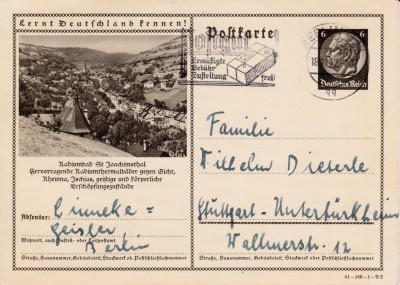 Lernt Deutschland kennen!
Postkarte
Ermäßigte
Gebühr
Zustellung
frei!
BERLIN
6 6
Deutsches Reich
Radiumbad St Joachimsthal
Hervorragende Radiumthermalbäder gegen Gicht,
Rheuma, Ischias, geistige und körperliche
Erschöpfungszustände
Absender:
Linneke=
Geisler
Wohnort, auch Zustell- oder Leitpostamt
Berlin
Straße, Hausnummer, Gebäudeteil, Stockwerk od. Postschließfachnummer
Familie
Wilhelm Dieterle
Stuttgart-Untertürkheim
Wallmerstr. 12
Straße, Hausnummer, Gebäudeteil, Stockwerk oder Postschließfachnummer